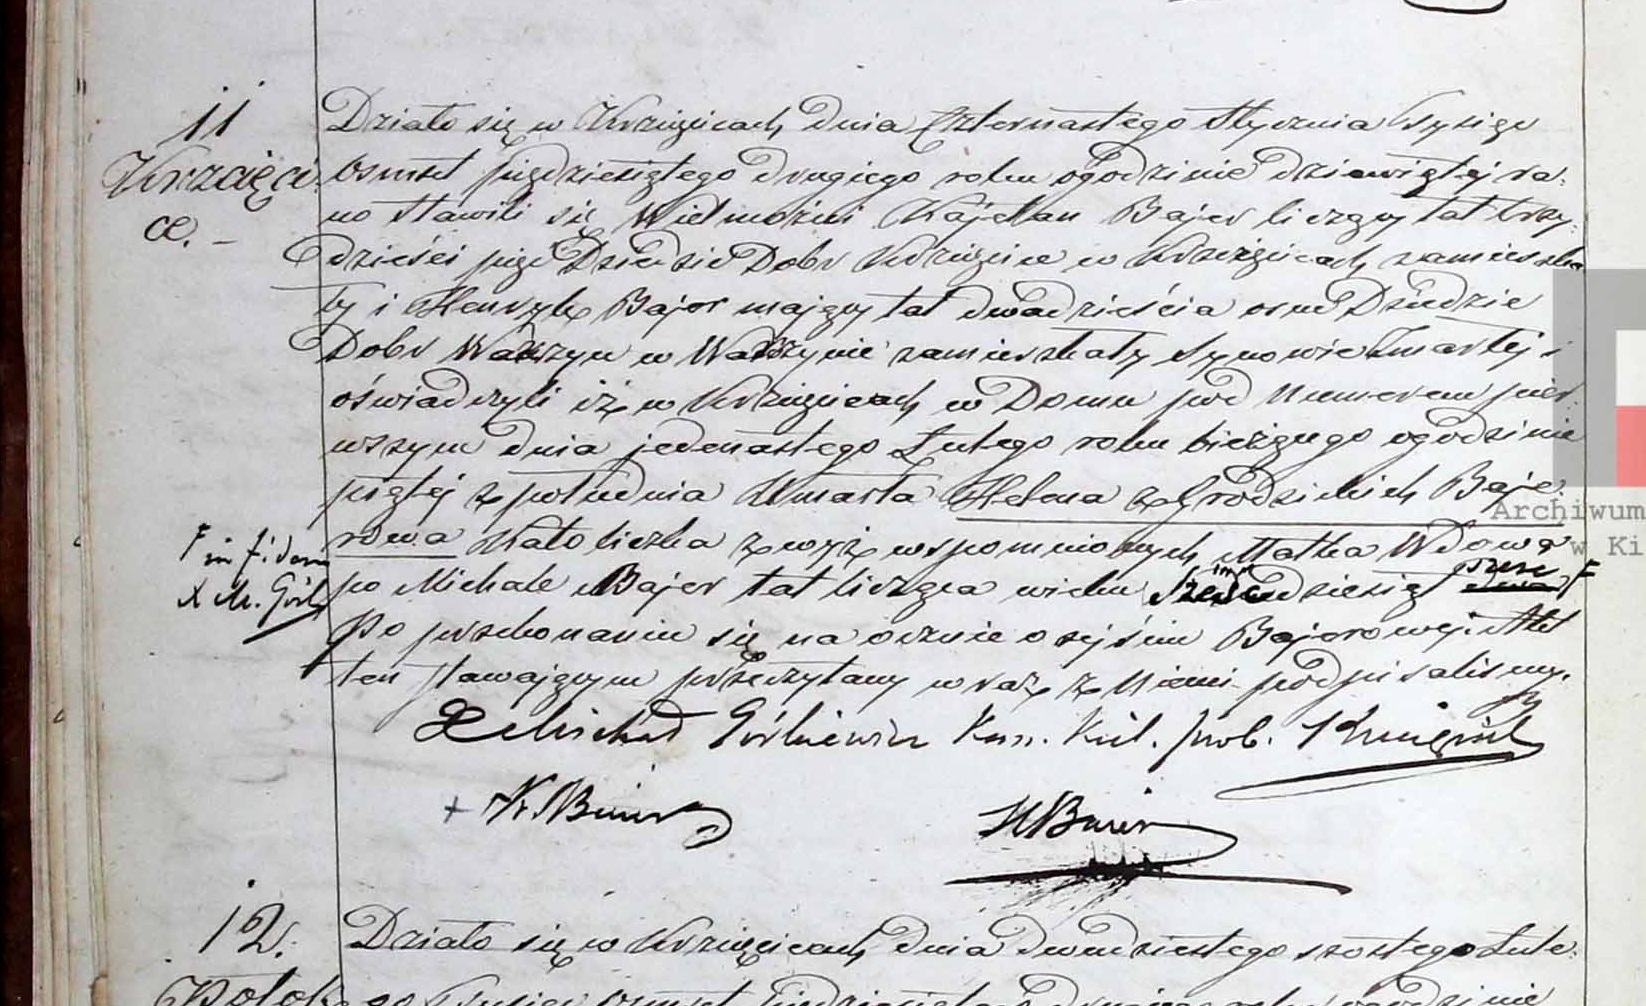 11
Krzcięci
ce. -
Działo się w Krzcięcicach dnia Czternastego Stycznia Tysiąc
Osmset pięćdziesiątego drugiego roku o godzinie dziewiątej ra:
no stawili się Wielmożni Kajetan Bajer liczący lat trzy:
dzieści pięć Dziedzic Dobr Krzcięcice w Krzcięcicach zamieszka
ły i Henryk Bajer mający lat dwadzieścia osm Dziedzic
Dobr Warzyn w Warzynie zamieszkały Synowie Zmarłej i
oświadczyli iż w Krzcięcicach w Domu pod Numerem pier:
wszym dnia jedenastego Lutego roku bieżącego o godzinie
piątej z południa Umarła Helena z Grodzickich Baje:
rowa Katoliczka zwyż wspomnionych Matka Wdowa
po Michale Bajer lat licząca wieku dziesiąt
Po przekonaniu się na ocznie o zejściu Bajerowej. Akt
ten stawającym przeczytany wraz z Niemi podpisaliśmy.
X. Michał Górkiewicz Kan. Kiel. prob.
+ K. Baier
H Baier
F in fidem
X M. Górk
12.
Działo się w Krzcięcicach dnia dwudziestego szóstego Lute:
Potok
go Tysiąc osmset Pięćdziesiątego drugiego roku o godzinie
Archiwum
w Ki